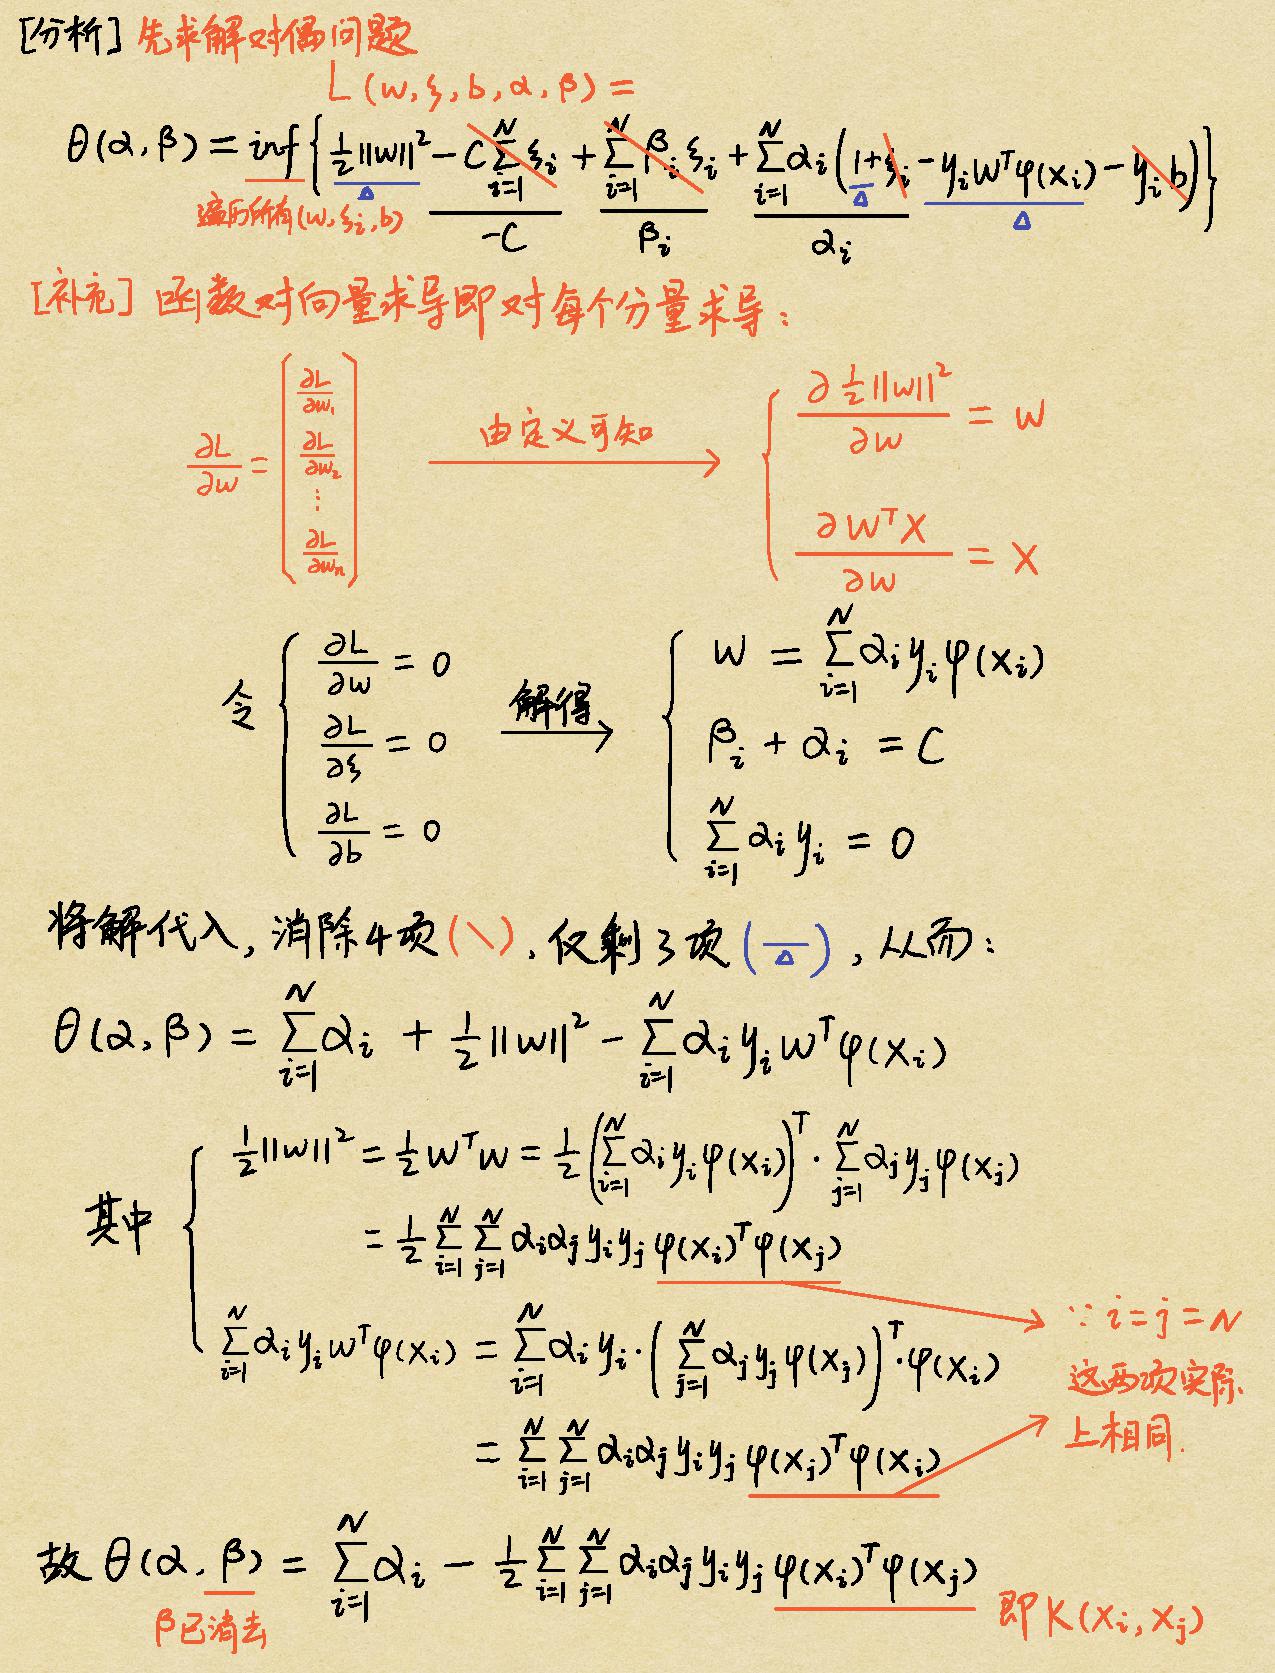 [分析] 先求解对偶问题
L(w,ξ,b,α,β) =
θ(α,β) = inf{ ½||w||² - C∑_{i=1}^{N} ξ_i + ∑_{i=1}^{N} β_i ξ_i + ∑_{i=1}^{N} α_i (1+ξ_i - y_i w^T φ(x_i) - y_i b) }
遍历所有(w,ξ_i,b) Δ -C β_i Δ α_i Δ
[补充] 函数对向量求导即对每个分量求导:
∂L/∂w = [ ∂L/∂w_1 ∂L/∂w_2 ⋮ ∂L/∂w_n ] 由定义可知 → { ∂½||w||²/∂w = w
∂w^T x/∂w = x
令 { ∂L/∂w = 0 解得 → { w = ∑_{i=1}^{N} α_i y_i φ(x_i)
∂L/∂ξ = 0 β_i + α_i = C
∂L/∂b = 0 ∑_{i=1}^{N} α_i y_i = 0
将解代入, 消除4项(\), 仅剩3项(Δ), 从而:
θ(α,β) = ∑_{i=1}^{N} α_i + ½||w||² - ∑_{i=1}^{N} α_i y_i w^T φ(x_i)
其中 { ½||w||² = ½ w^T w = ½ (∑_{i=1}^{N} α_i y_i φ(x_i))^T · ∑_{j=1}^{N} α_j y_j φ(x_j)
= ½ ∑_{i=1}^{N} ∑_{j=1}^{N} α_i α_j y_i y_j φ(x_i)^T φ(x_j)
∑_{i=1}^{N} α_i y_i w^T φ(x_i) = ∑_{i=1}^{N} α_i y_i · (∑_{j=1}^{N} α_j y_j φ(x_j))^T · φ(x_i)
= ∑_{i=1}^{N} ∑_{j=1}^{N} α_i α_j y_i y_j φ(x_j)^T φ(x_i)
∵ i=j=N
这两项实际
上相同.
故 θ(α,β) = ∑_{i=1}^{N} α_i - ½ ∑_{i=1}^{N} ∑_{j=1}^{N} α_i α_j y_i y_j φ(x_i)^T φ(x_j)
β已消去 即 K(x_i, x_j)